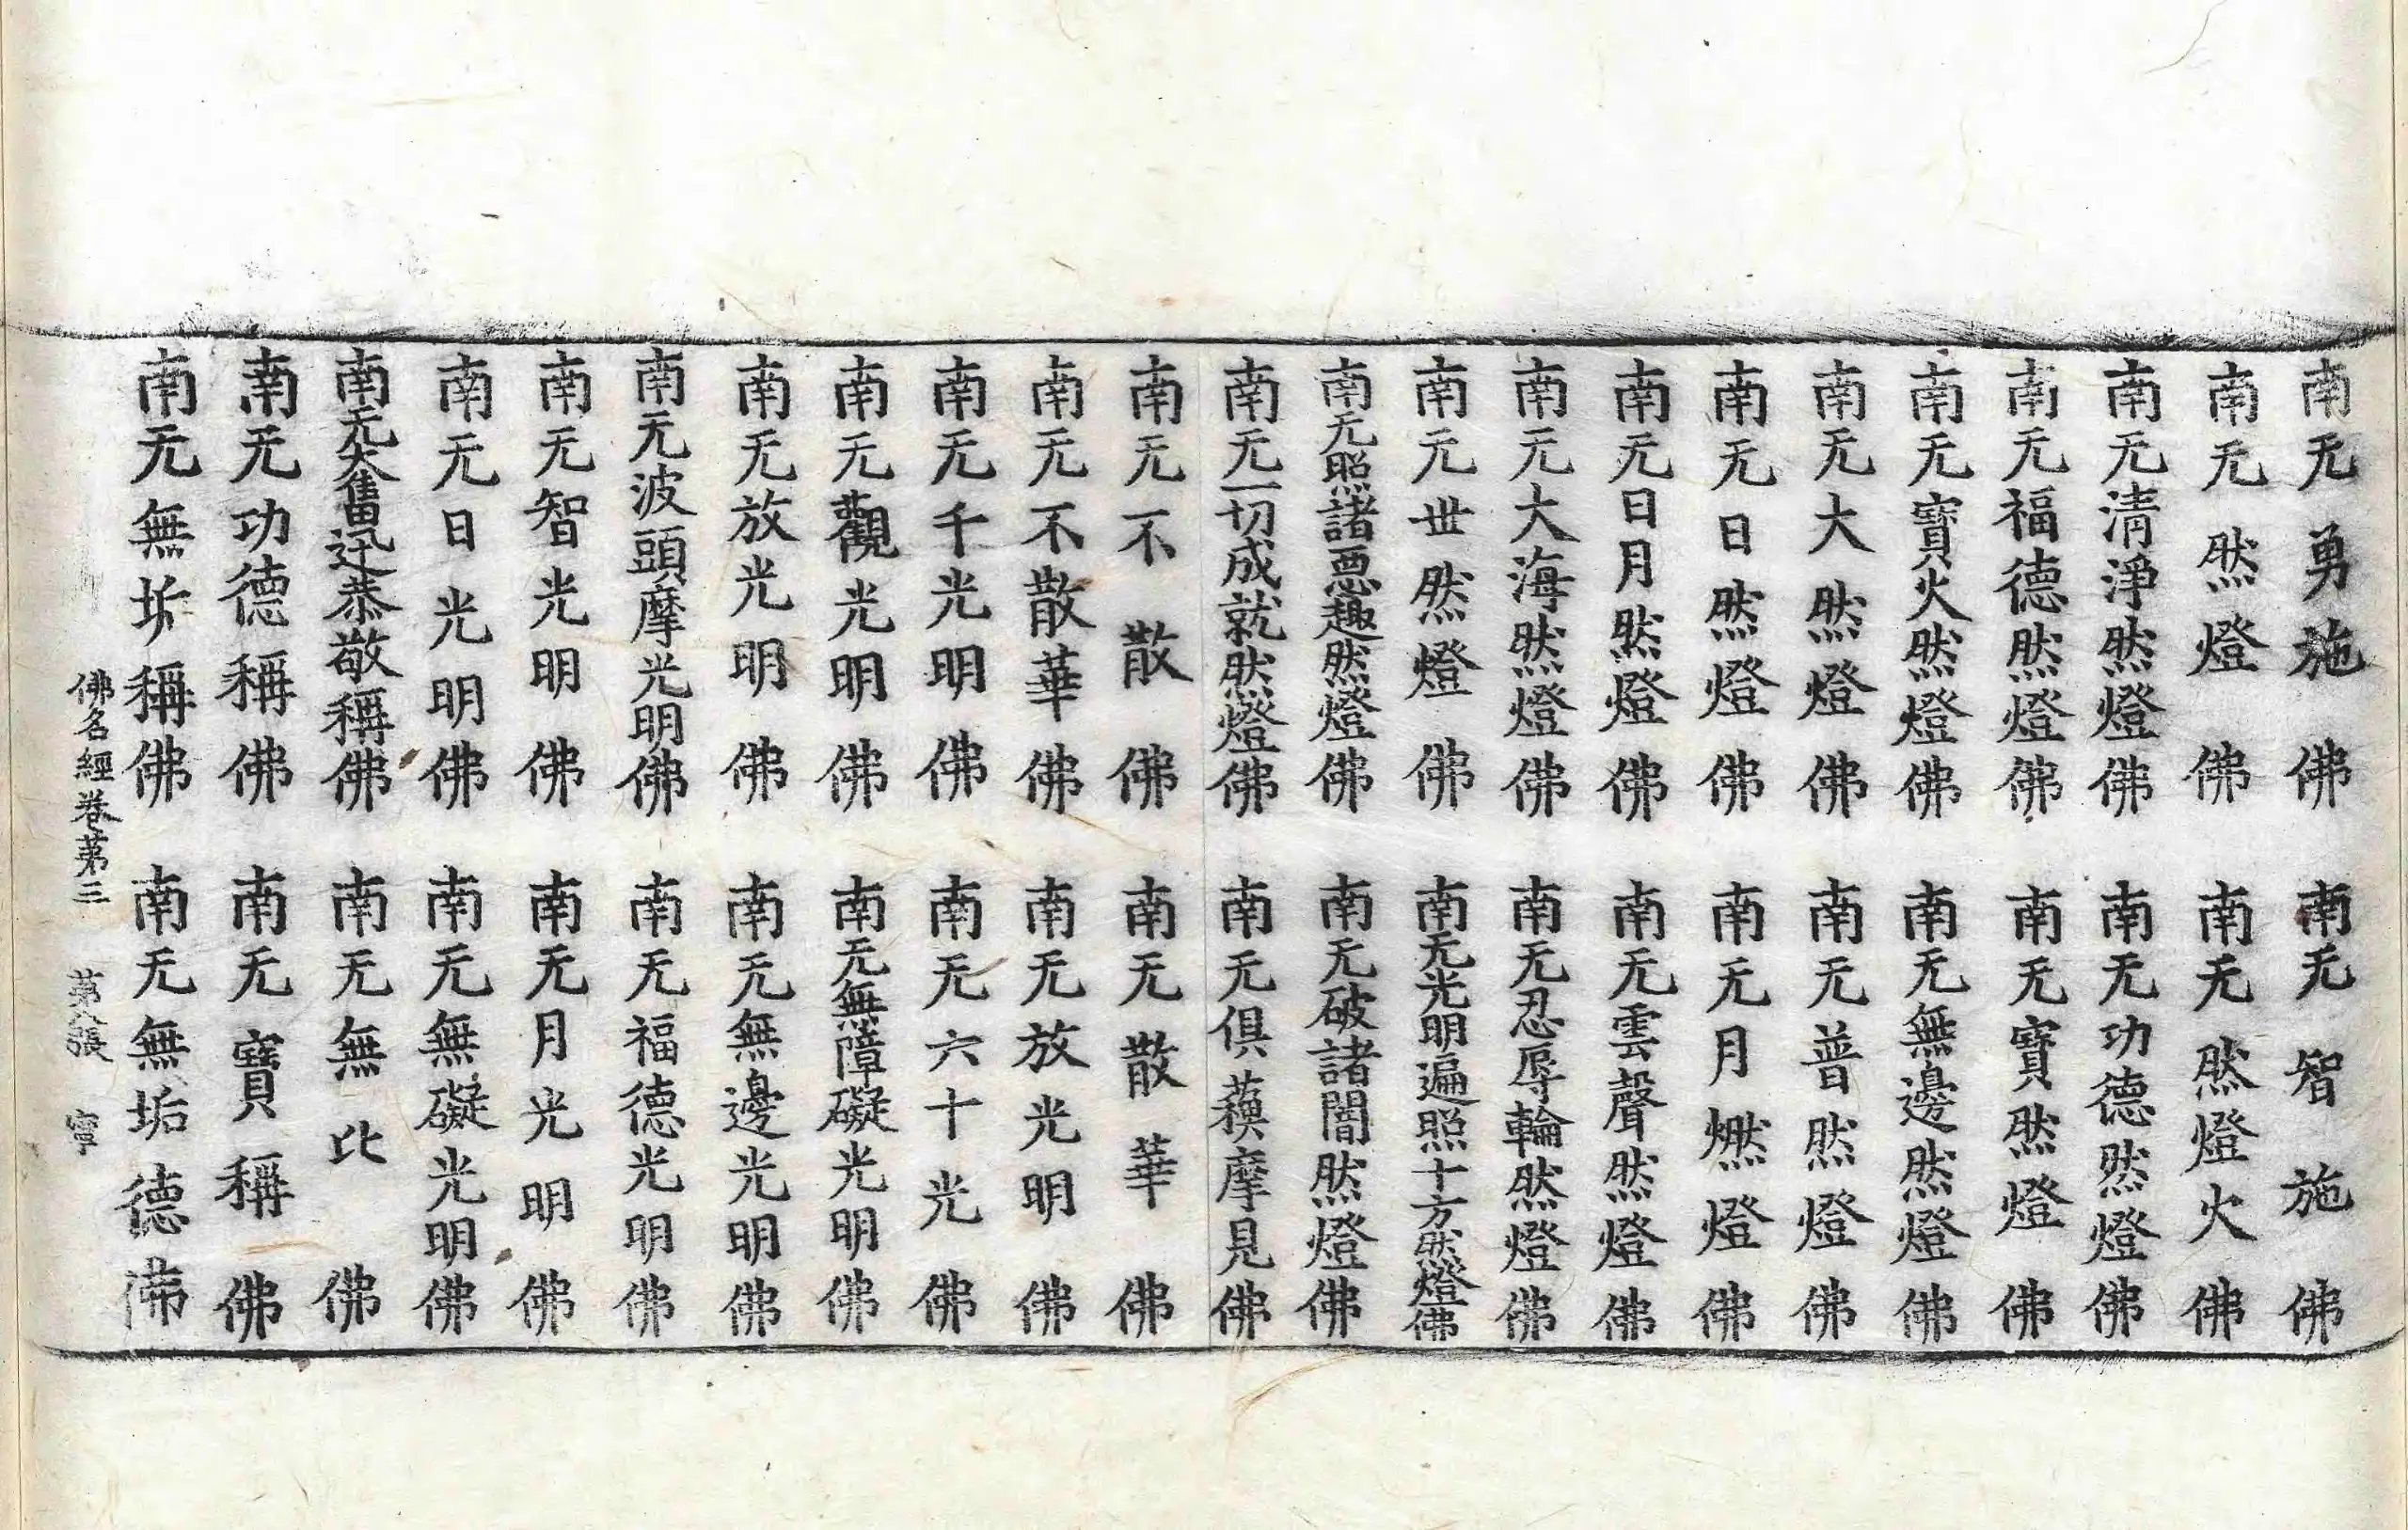 南无勇施佛　南无智施佛
南无然燈佛　南无然燈火佛
南无清淨然燈佛　南无功德然燈佛
南无福德然燈佛　南无寶然燈佛
南无寶火然燈佛　南无無邊然燈佛
南无大然燈佛　南无普然燈佛
南无日然燈佛　南无月燃燈佛
南无日月然燈佛　南无雲聲然燈佛
南无大海然燈佛　南无忍辱輪然燈佛
南无世然燈佛　南无光明遍照十方然燈佛
南无照諸惡趣然燈佛　南无破諸闇然燈佛
南无一切成就然燈佛　南无俱蘓摩見佛
南无不散佛　南无散華佛
南无不散華佛　南无放光明佛
南无千光明佛　南无六十光佛
南无觀光明佛　南无無障礙光明佛
南无放光明佛　南无無邊光明佛
南无波頭摩光明佛　南无福德光明佛
南无智光明佛　南无月光明佛
南无日光明佛　南无無礙光明佛
南无大奮迅恭敬稱佛　南无無比佛
南无功德稱佛　南无寶稱佛
南无無垢稱佛　南无無垢德佛
佛名經卷苐三　苐八張　寧